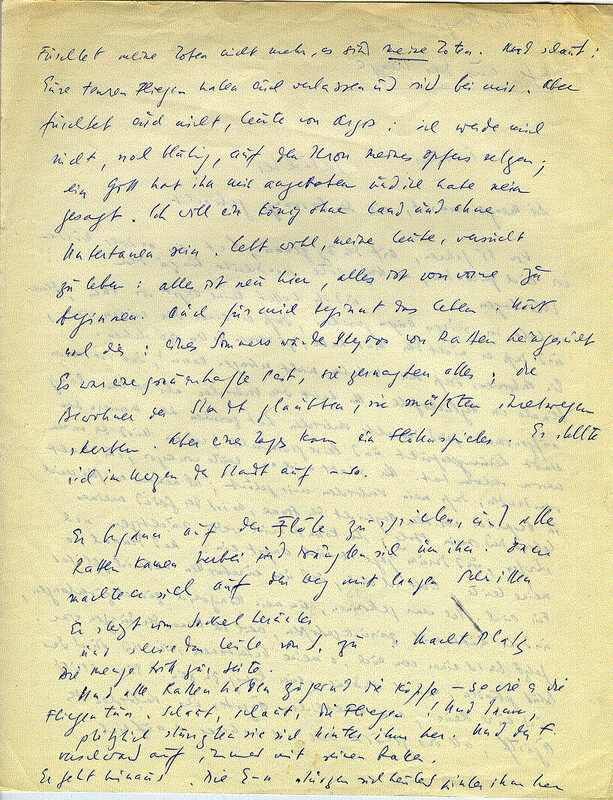 Fürchtet meine Toten nicht mehr, es sind meine Toten. Und schaut:
Eure teuren Fliegen haben euch verlassen und sind bei mir. Aber
fürchtet euch nicht, Leute von Argos: ich werde mich
nicht, noch blutig, auf den Thron meines Opfers setzen;
ein Gott hat ihn mir angeboten und ich habe nein
gesagt. Ich will ein König ohne Land und ohne
Untertanen sein. Lebt wohl, meine Leute, versucht
zu leben: alles ist neu hier, alles ist von vorne zu
beginnen. Auch für mich beginnt das Leben. Hört
noch dies: eines Sommers wurde Skyros von Ratten heimgesucht
Es war eine grauenhafte Pest, sie zernagten alles; die
Bewohner der Stadt glaubten, sie müßten ihretwegen
sterben. Aber eines Tages kam ein Flötenspieler. Er stellte
sich im Herzen der Stadt auf – so.
Er begann auf der Flöte zu spielen, und alle
Ratten kamen herbei und drängten sich um ihn. Dann
machte er sich auf den Weg mit langen Schritten
Er steigt vom Sockel herunter
und schrie den Leuten von S. zu: Macht Platz
Die Menge tritt zur Seite.
Und alle Ratten hoben zögernd die Köpfe – so wie die
Fliegen tun. Schaut, schaut, die Fliegen! Und dann,
plötzlich stürzten sie sich hinter ihm her. Und der F.
verschwand auf immer mit seinen Ratten.
Er geht hinaus. Die E-n stürzen sich heulend hinter ihm her